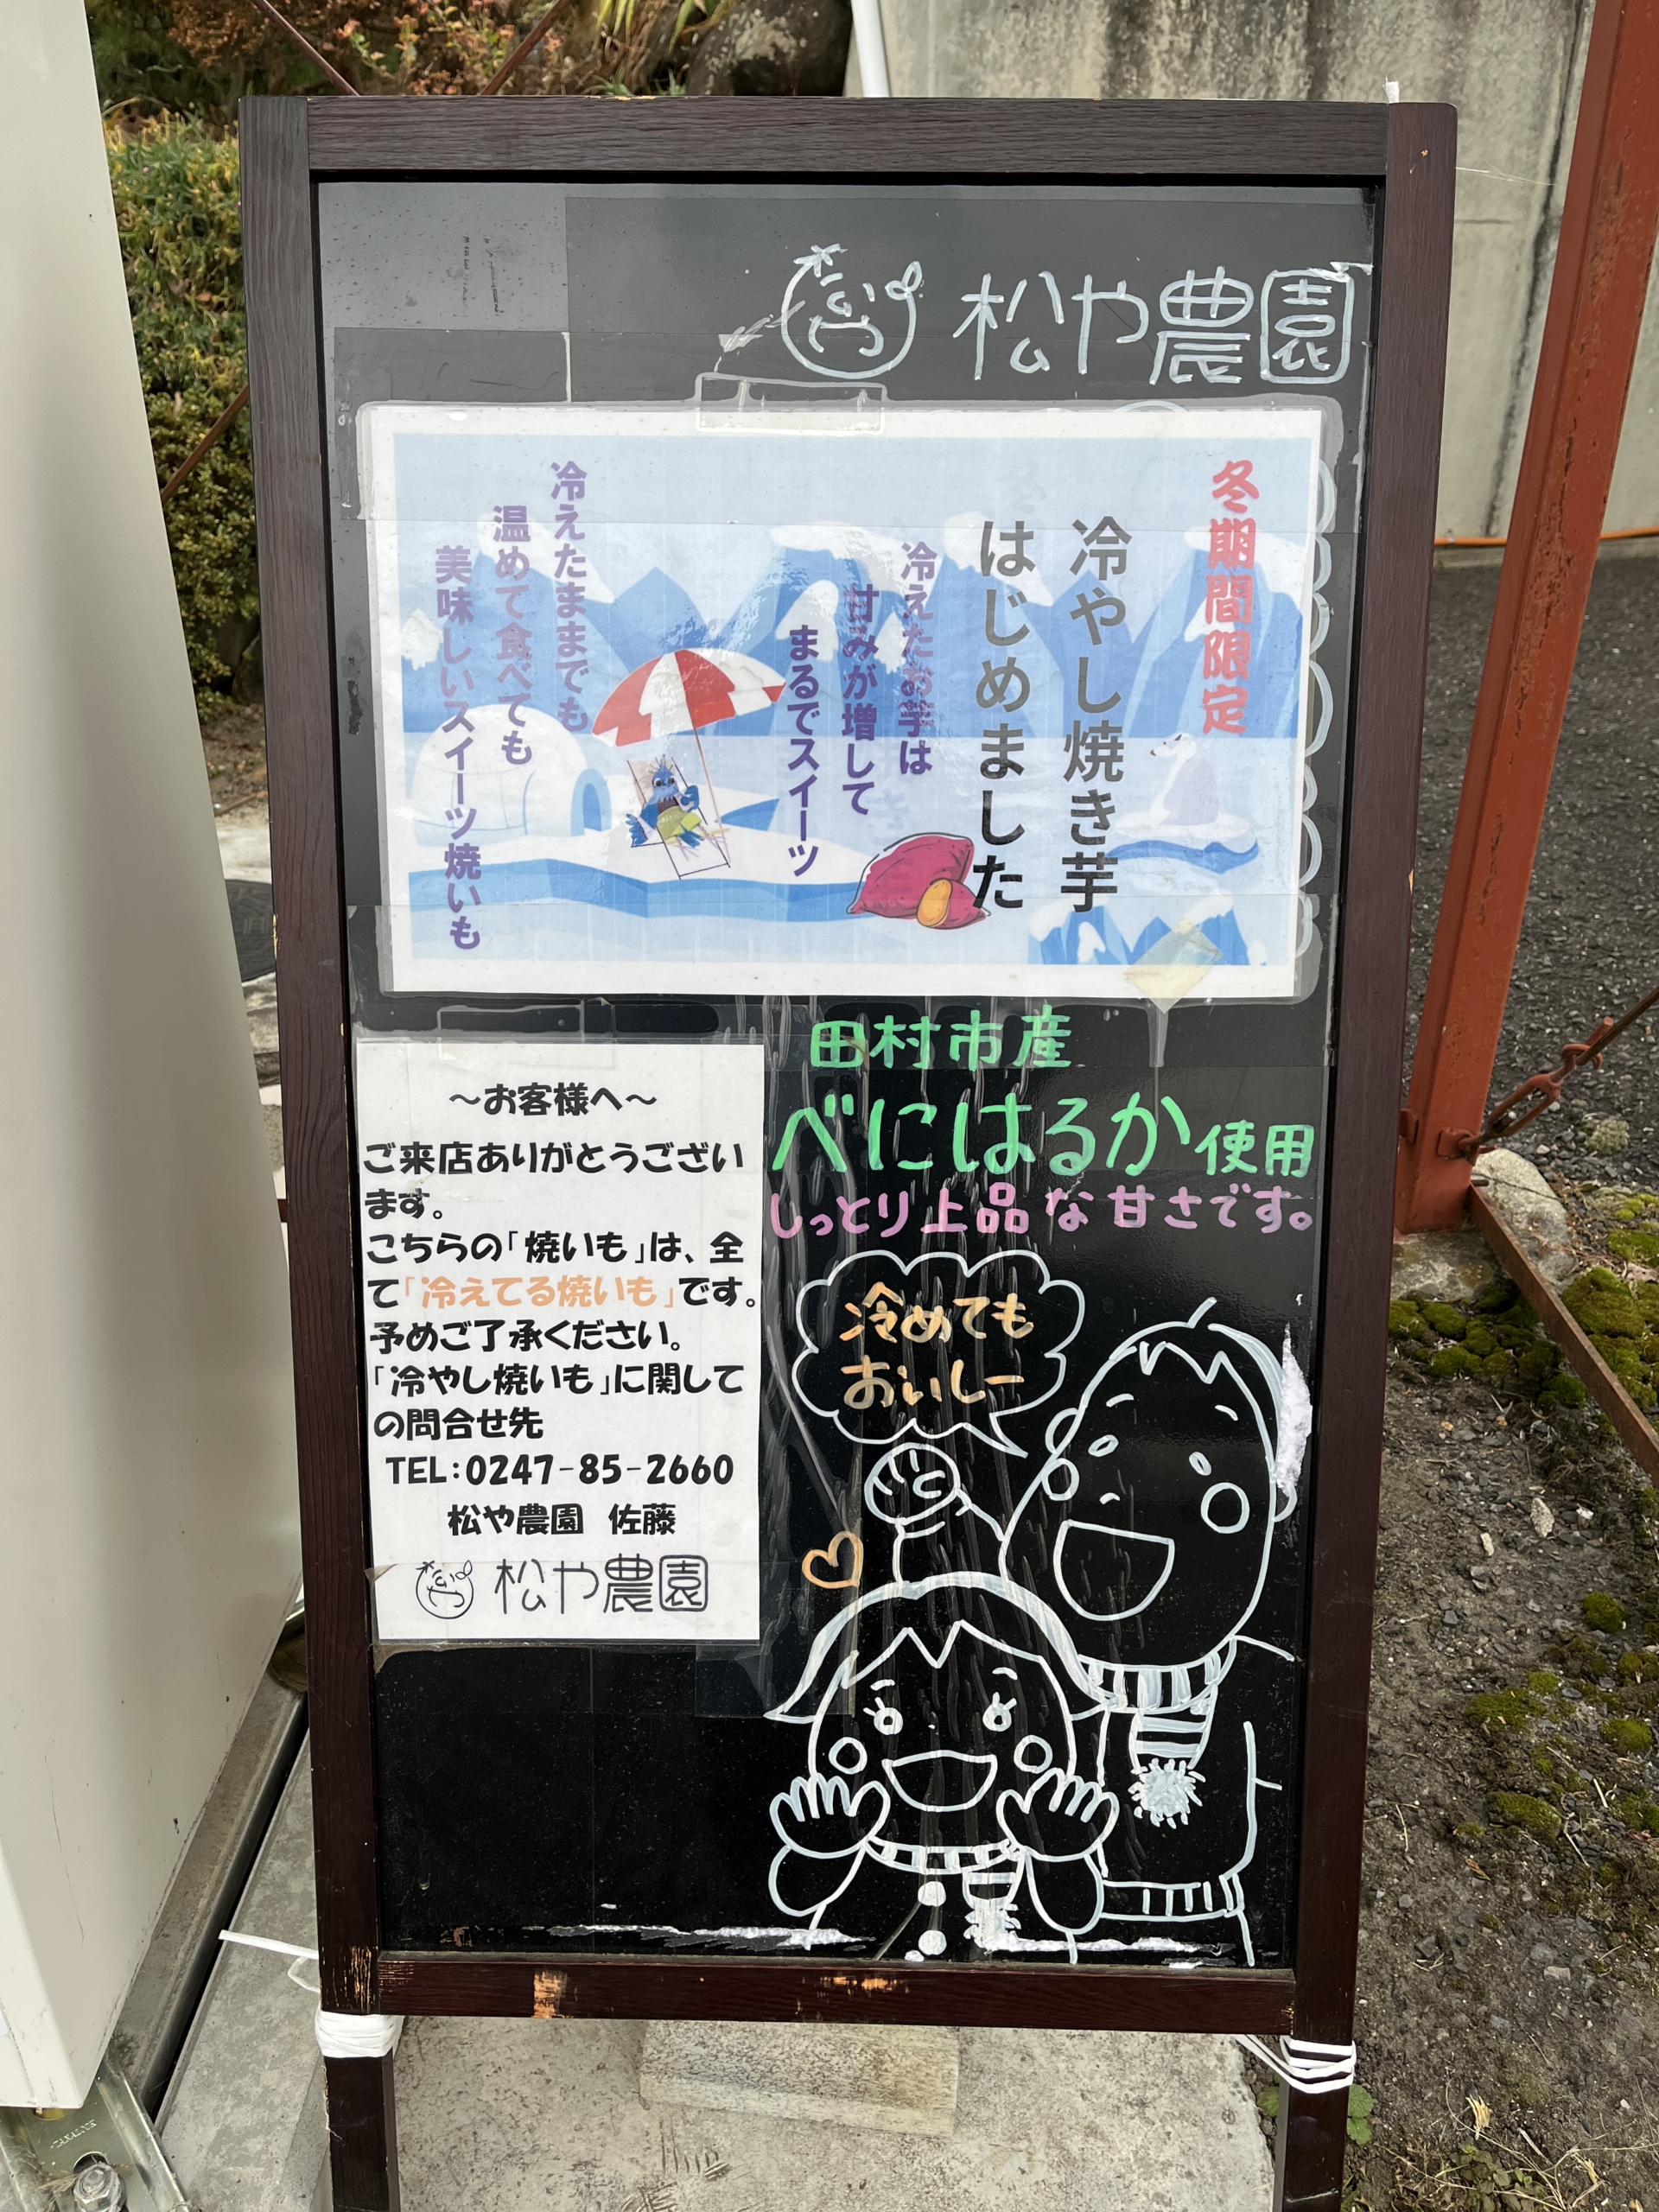 松や農園
冬期間限定
冷やし焼き芋
はじめました
冷えたお芋は
甘みが増して
まるでスイーツ
冷えたままでも
温めて食べても
美味しいスイーツ焼いも
田村市産
べにはるか使用
しっとり上品な甘さです。
冷めても
おいしー
～お客様へ～
ご来店ありがとうござい
ます。
こちらの「焼いも」は、全
て「冷えてる焼いも」です。
予めご了承ください。
「冷やし焼いも」に関して
の問合せ先
TEL:0247-85-2660
松や農園 佐藤
松や農園